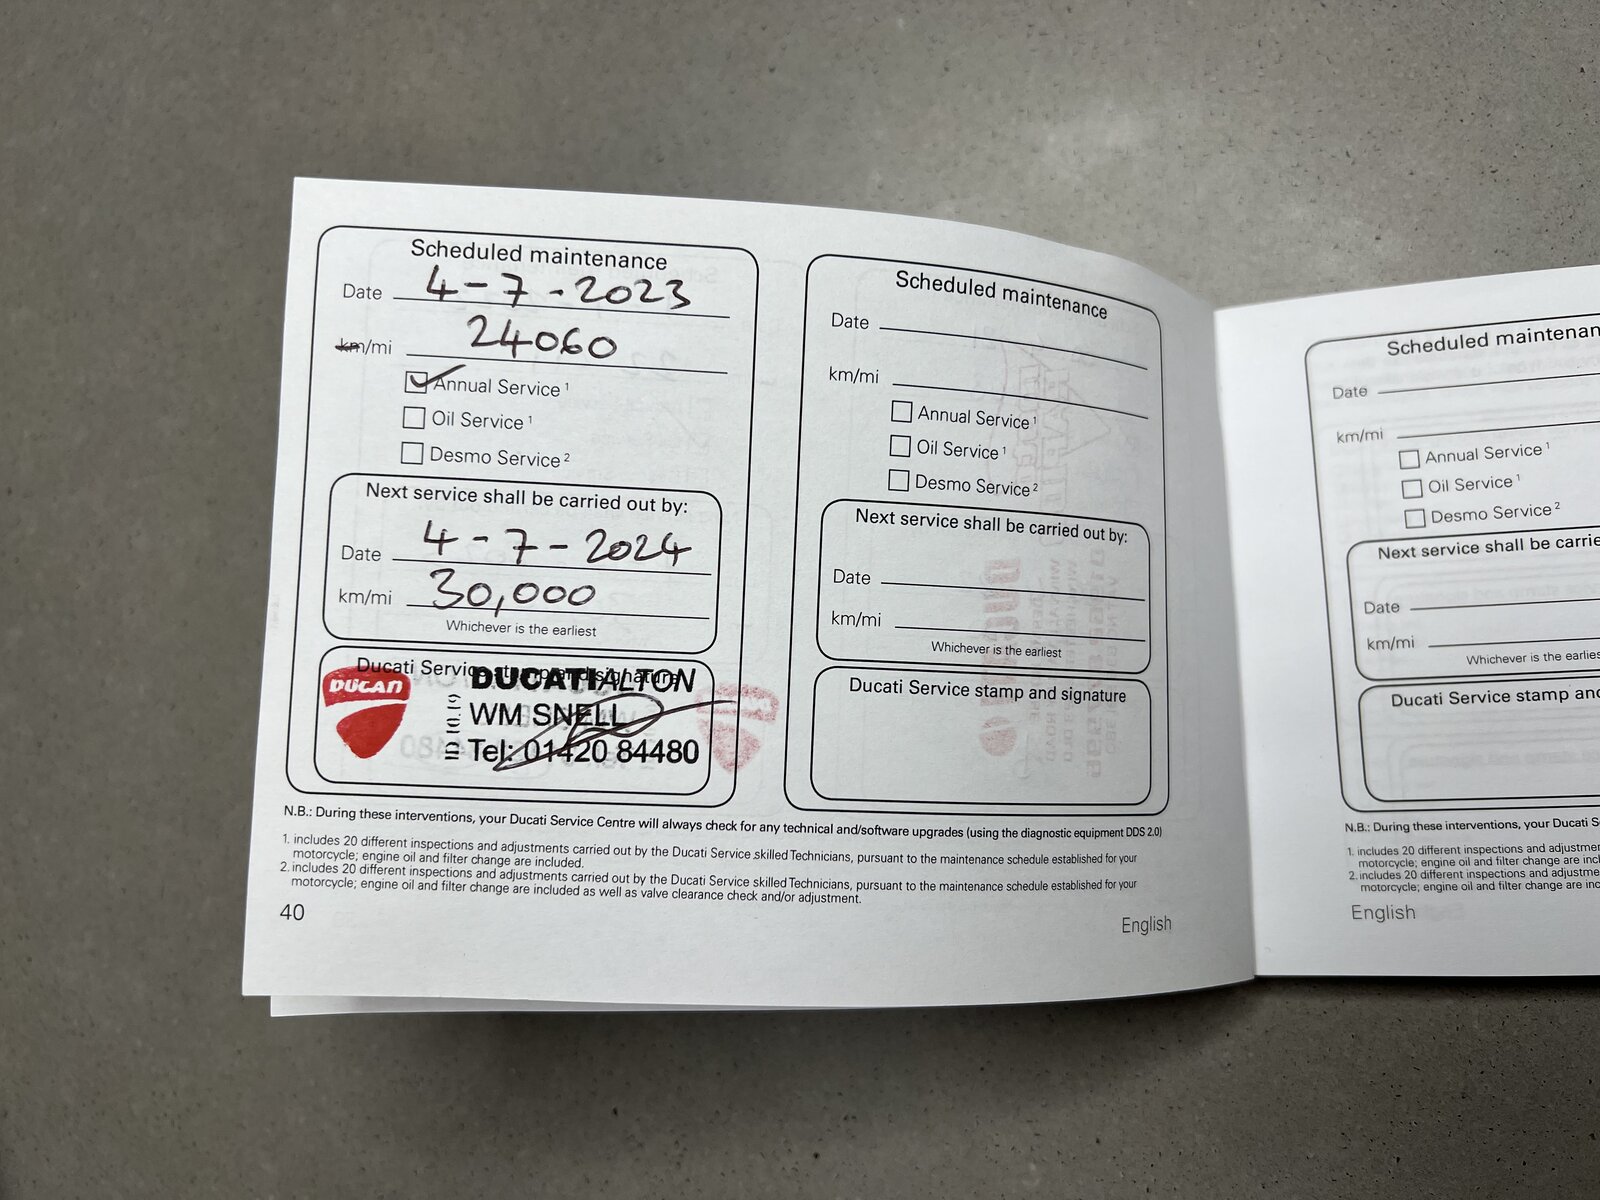 Scheduled maintenance
Date 4-7-2023
km/mi 24060
Annual Service 1
Oil Service 1
Desmo Service 2
Next service shall be carried out by:
Date 4-7-2024
km/mi 30,000
Whichever is the earliest
Ducati Service stamp and signature
DUCATI
DUCATI ALTON
WM SNELL
Tel: 01420 84480
Scheduled maintenance
Date
km/mi
Annual Service 1
Oil Service 1
Desmo Service 2
Next service shall be carried out by:
Date
km/mi
Whichever is the earliest
Ducati Service stamp and signature
N.B.: During these interventions, your Ducati Service Centre will always check for any technical and/software upgrades (using the diagnostic equipment DDS 2.0)
1. includes 20 different inspections and adjustments carried out by the Ducati Service skilled Technicians, pursuant to the maintenance schedule established for your
motorcycle; engine oil and filter change are included.
2. includes 20 different inspections and adjustments carried out by the Ducati Service skilled Technicians, pursuant to the maintenance schedule established for your
motorcycle; engine oil and filter change are included as well as valve clearance check and/or adjustment.
40
English
Scheduled
Date
km/mi
Annual Service 1
Oil Service 1
Desmo Service 2
Next service shall be
Date
km/mi
Whichever is the
Ducati Service stamp
N.B.: During these interventions, your Ducati
1. includes 20 different inspections and
motorcycle; engine oil and filter change are
2. includes 20 different inspections and
motorcycle; engine oil and filter change are
English